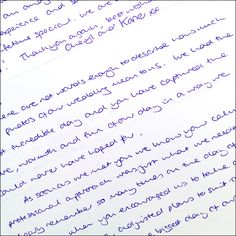 an am
experience and so
lifetime special! We are
! Thank you again, best wishes
Cheryl and Kane xx
ere are not words enough to describe how much
photos of our wedding mean to us. We had the
st incredible day and you have captured the
ve, warmth and fun of our day in a way we
ould never have hoped for.
As soon as we met you we knew your calm
professional approach was just what we neede
early remember so many times on the day of
when you encouraged us to take a
adjusted plans to suit
e biggest day of our